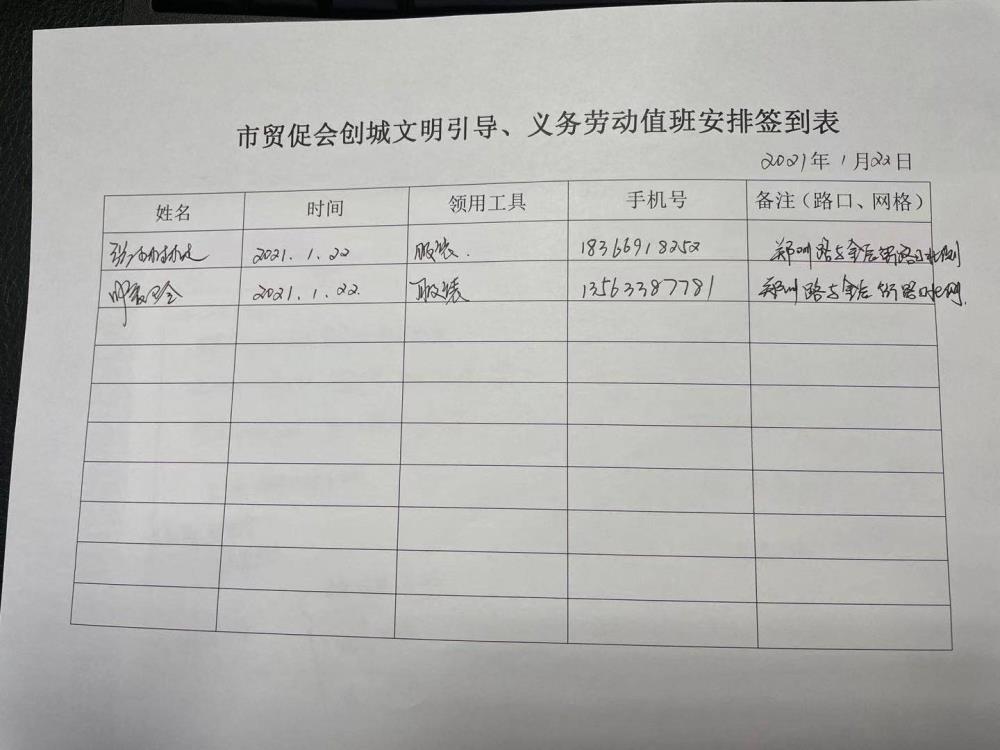 市贸促会创城文明引导、义务劳动值班安排签到表
2021年1月22日
姓名 时间 领用工具 手机号 备注（路口、网格）
2021.1.22 服装. 18366918252 郑州路与
2021.1.22. 服装 13563387781 郑州路与